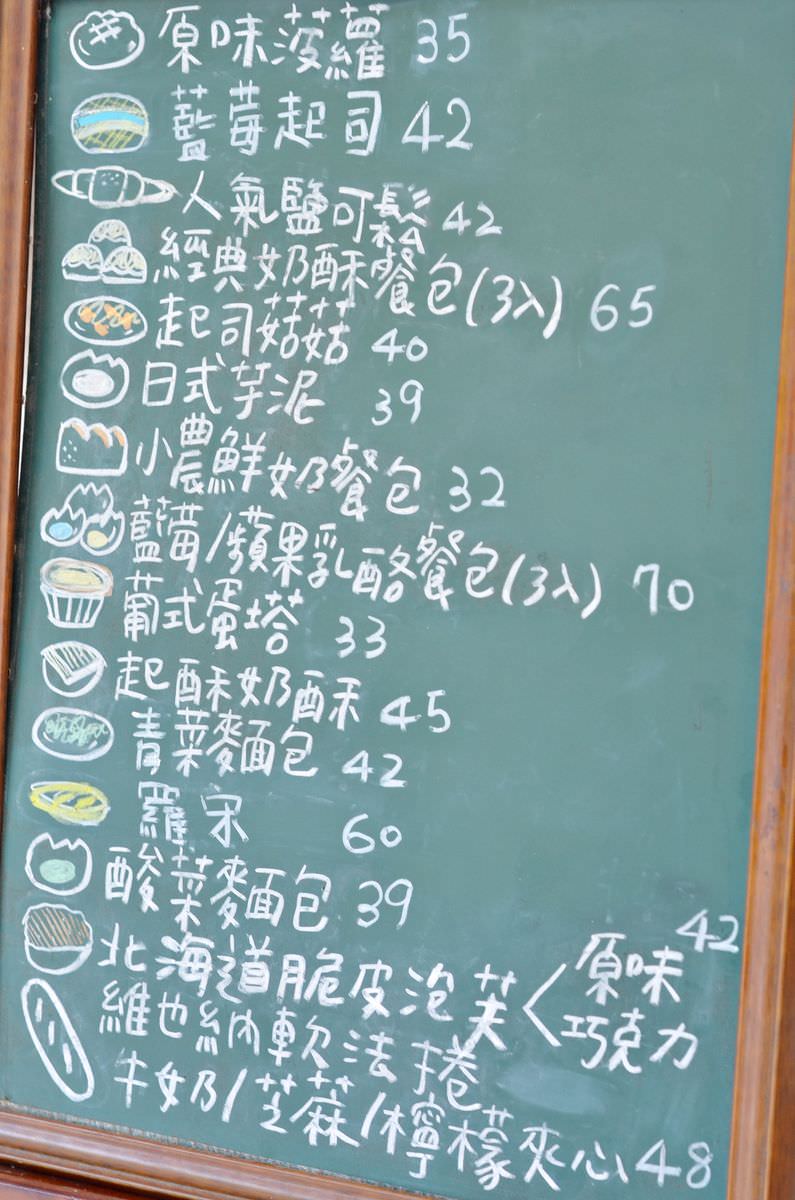 原味菠蘿 35
藍莓起司 42
人氣鹽可鬆 42
經典奶酥餐包(3入) 65
起司菇菇 40
日式芋泥 39
小農鮮奶餐包 32
藍莓/蘋果乳酪餐包(3入) 70
葡式蛋塔 33
起酥奶酥 45
青菜麵包 42
羅宋 60
酸菜麵包 39
北海道脆皮泡芙 < 原味 42
巧克力
維也納軟法捲
牛奶/芝麻/檸檬夾心 48